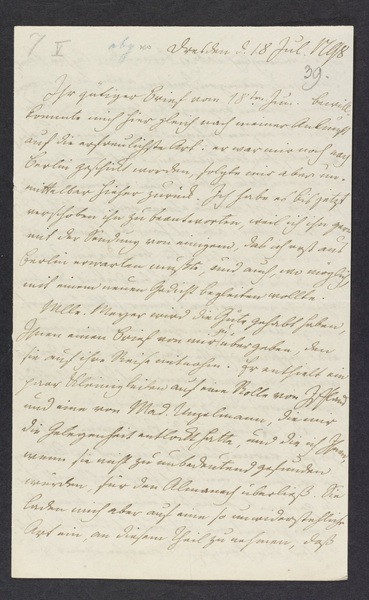 7 V abg
Dresden d. 18 Jul. 1798
39.
Ihr gütiger Brief vom 18ten Jun. bewill-
kommte mich hier gleich nach meiner Ankunft
auf die erfreulichste Art: er war mir noch nach
Berlin geschickt worden, folgte mir aber un-
mittelbar hieher zurück. Ich habe es bis jetzt
verschoben ihn zu beantworten, weil ich ihn gern
mit der Sendung von einigem, das ich erst aus
Berlin erwarten mußte, und auch, wo möglich,
mit einem neuen Gedicht begleiten wollte.
Mlle. Meyer wird die Güte gehabt haben,
Ihnen einen Brief von mir zu übergeben, den
sie auf ihre Reise mitnahm. Er enthielt ein
paar Kleinigkeiten auf eine Rolle von Iffland
und eine von Mad. Unzelmann, die mir
die Gelegenheit entlockt hatte, und die ich Ihnen,
wenn sie nicht zu unbedeutend gefunden
würden, für den Almanach überließ. Sie
laden mich aber auf eine so unwiderstehliche
Art ein, an diesem Theil zu nehmen, daß